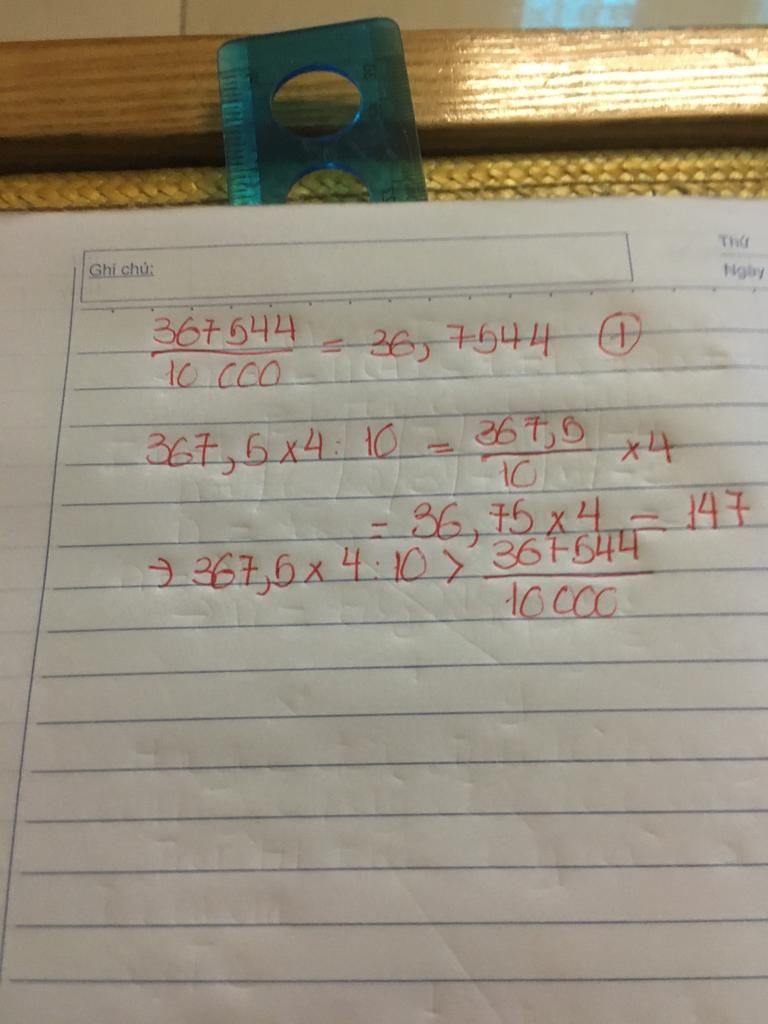 Ghi chú:
Thứ
Ngày
367544/10 000 = 36,7544 ⊕
367,5 x 4 : 10 = 367,5/10 x 4
= 36,75 x 4 = 147
→ 367,5 x 4 : 10 > 367544/10 000